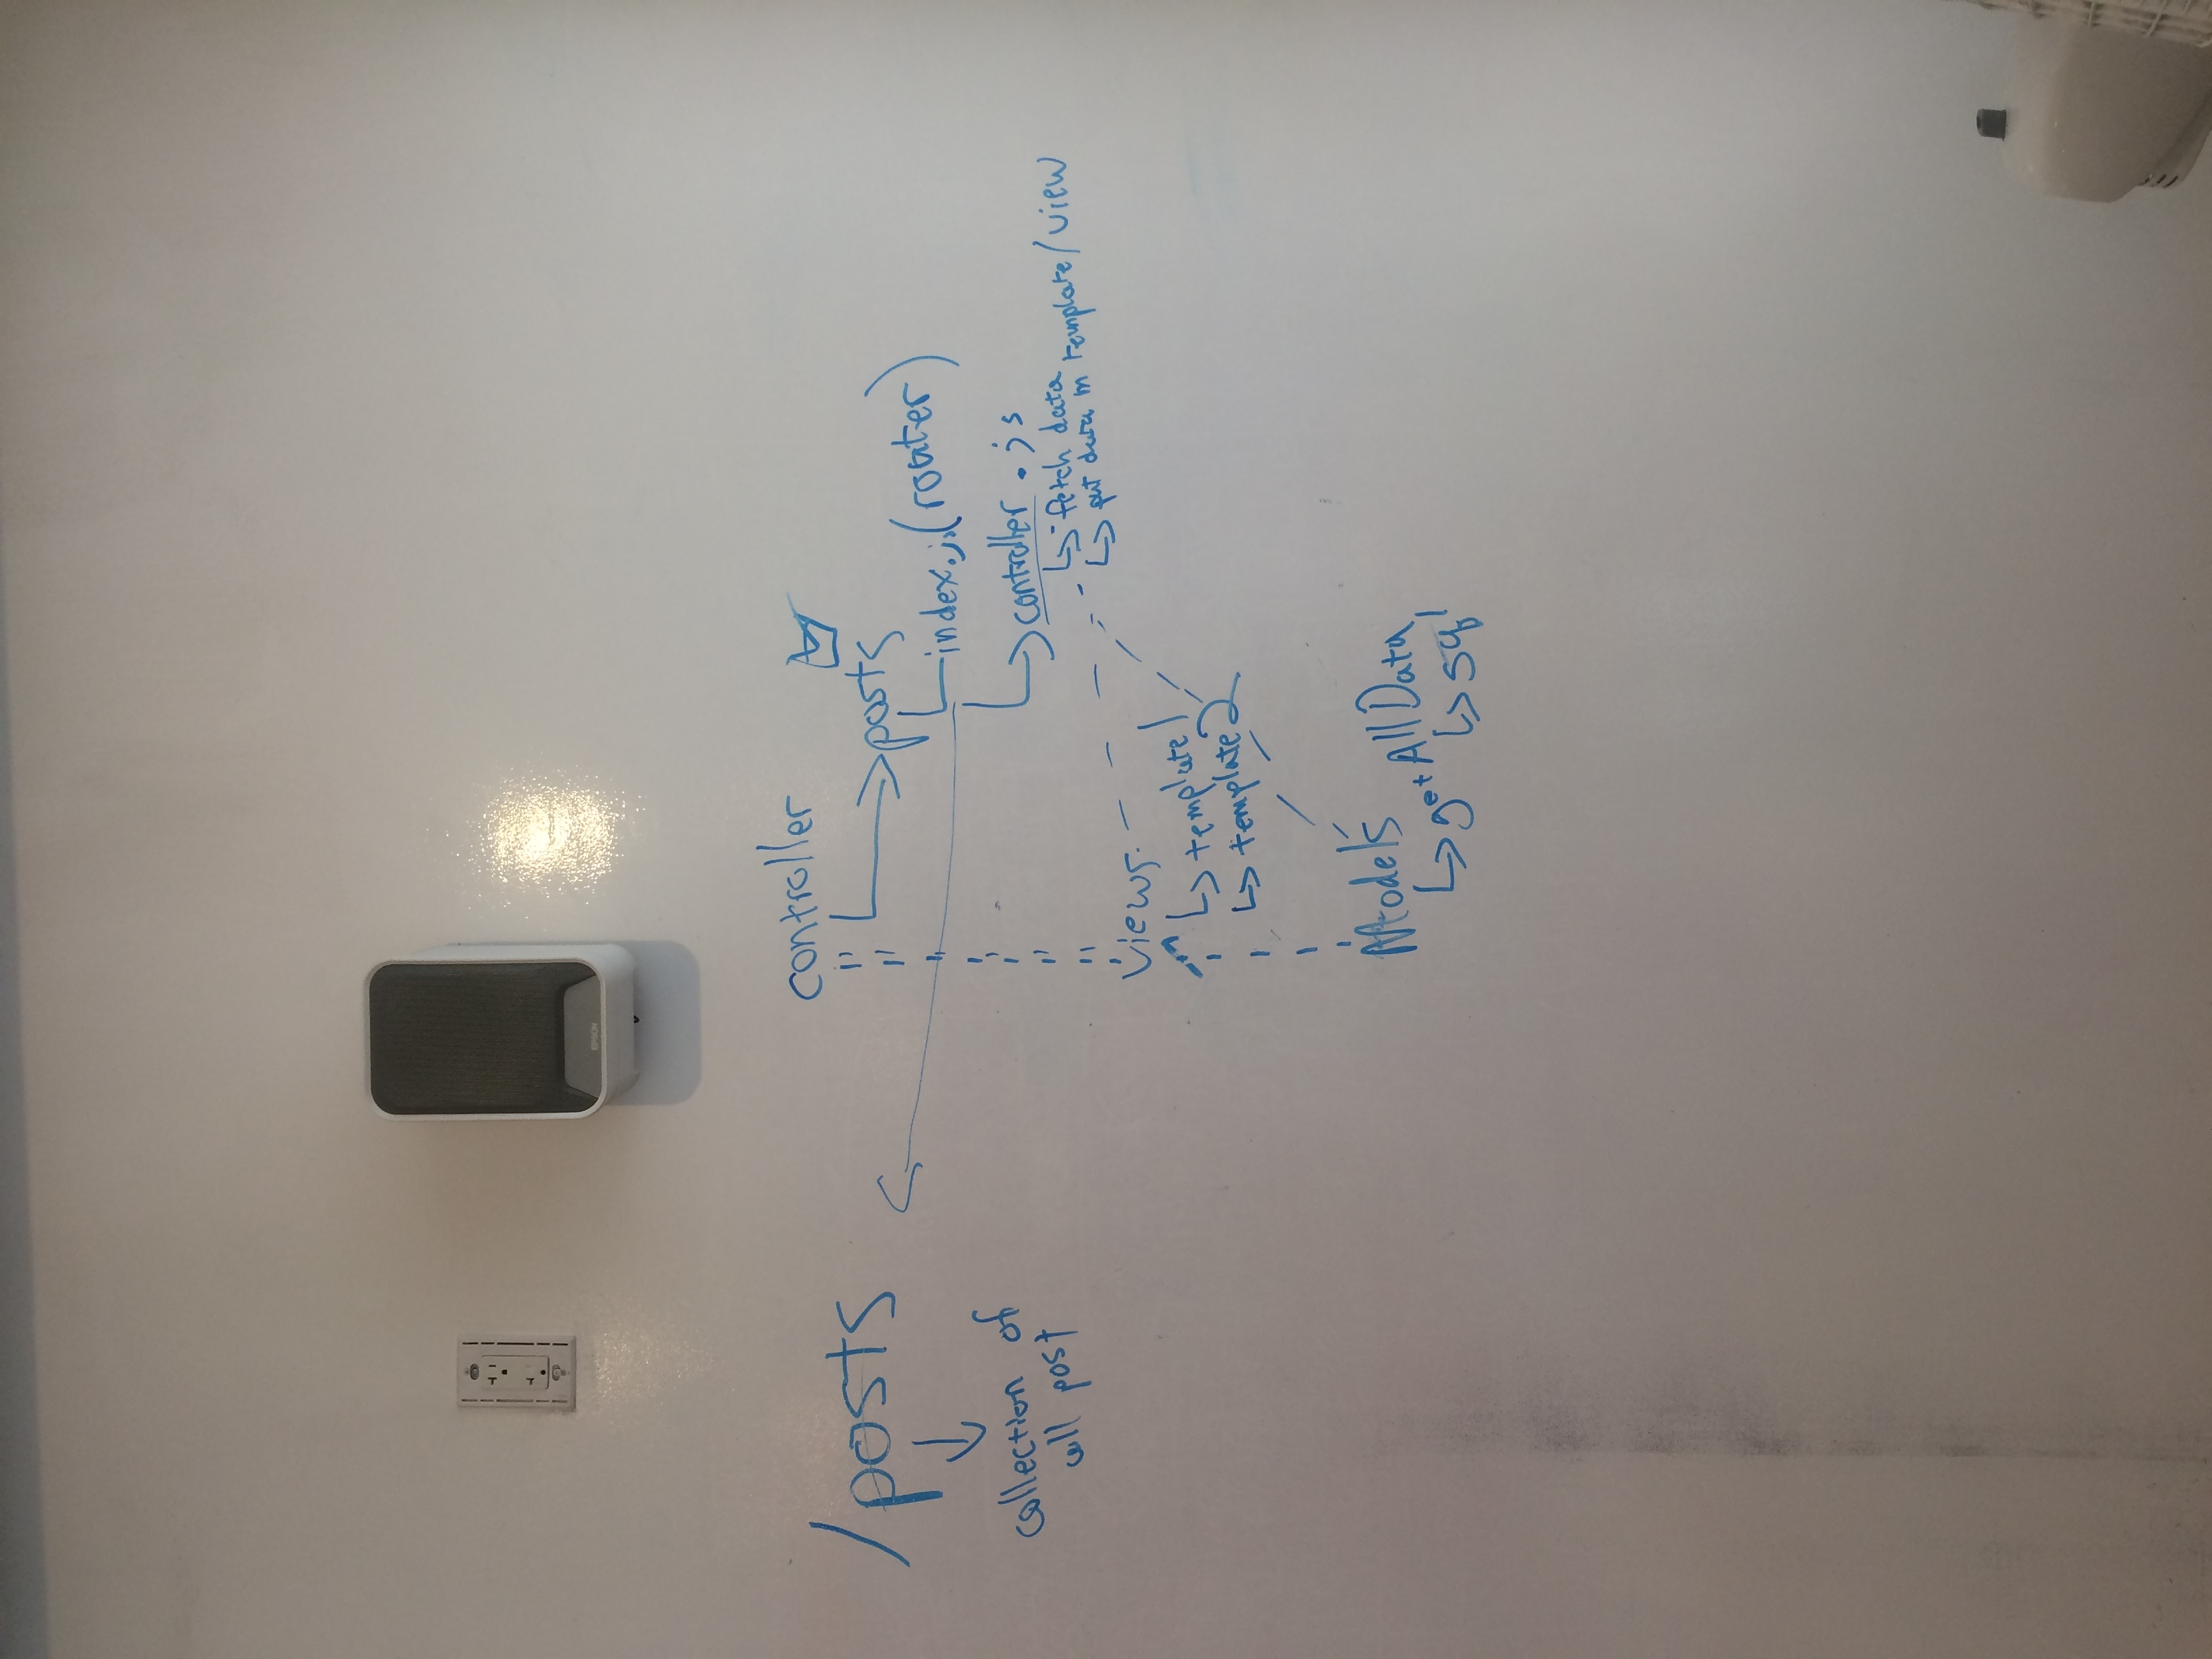 EPSON
/posts
collection of
all post
controller
posts
index.js (router)
controller.js
fetch data
put data in template/view
views
template 1
template 2
Models
getAllData
sql